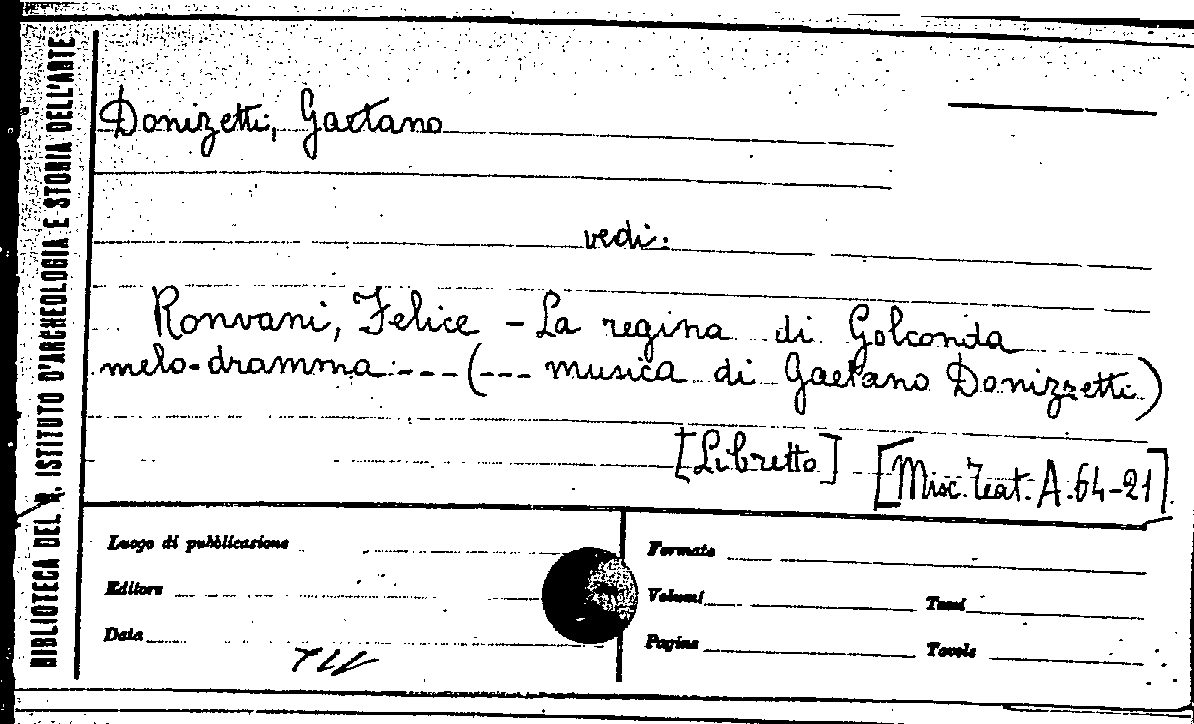 BIBLIOTECA DEL R. ISTITUTO D'ARCHEOLOGIA E STORIA DELL'ARTE
Donizetti, Gaetano
vedi:
Ronvani, Felice - La regina di Golconda
melo-dramma --- (--- musica di Gaetano Donizzetti)
[Libretto] [Misc. Teat. A. 64-21]
Luogo di pubblicazione
Editore
Data
Formato
Volumi
Tomi
Pagine
Tavole